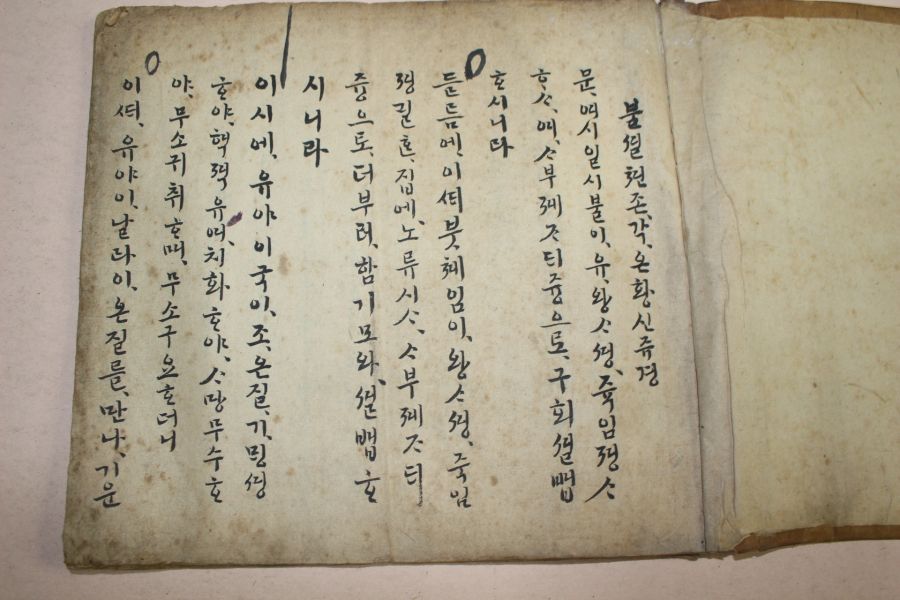 불셜쳔존,각,온황신쥬경
문,여시일시불이,유,왕ᄉ셩,쥭임졍ᄉ
ᄒᄉ,여,ᄉ부졔ᄌ티즁으로,구회셜뻡
ᄒ시니라
듣듬에,이셔붓쳬임이,왕ᄉ셩,죽임
집에,노류시ᄉ,ᄉ부졔ᄌ티
즁으로,더부러,함기모와,셜뻡ᄒ
시니라
이시에,유야이국이,조,온질,기
ᄒ야,유여,치화ᄒ야,ᄉ망무수ᄒ
야,무소귀취ᄒ며,무소구요ᄒ더니
이셔,유야이,날라이,온질를,만나,기운